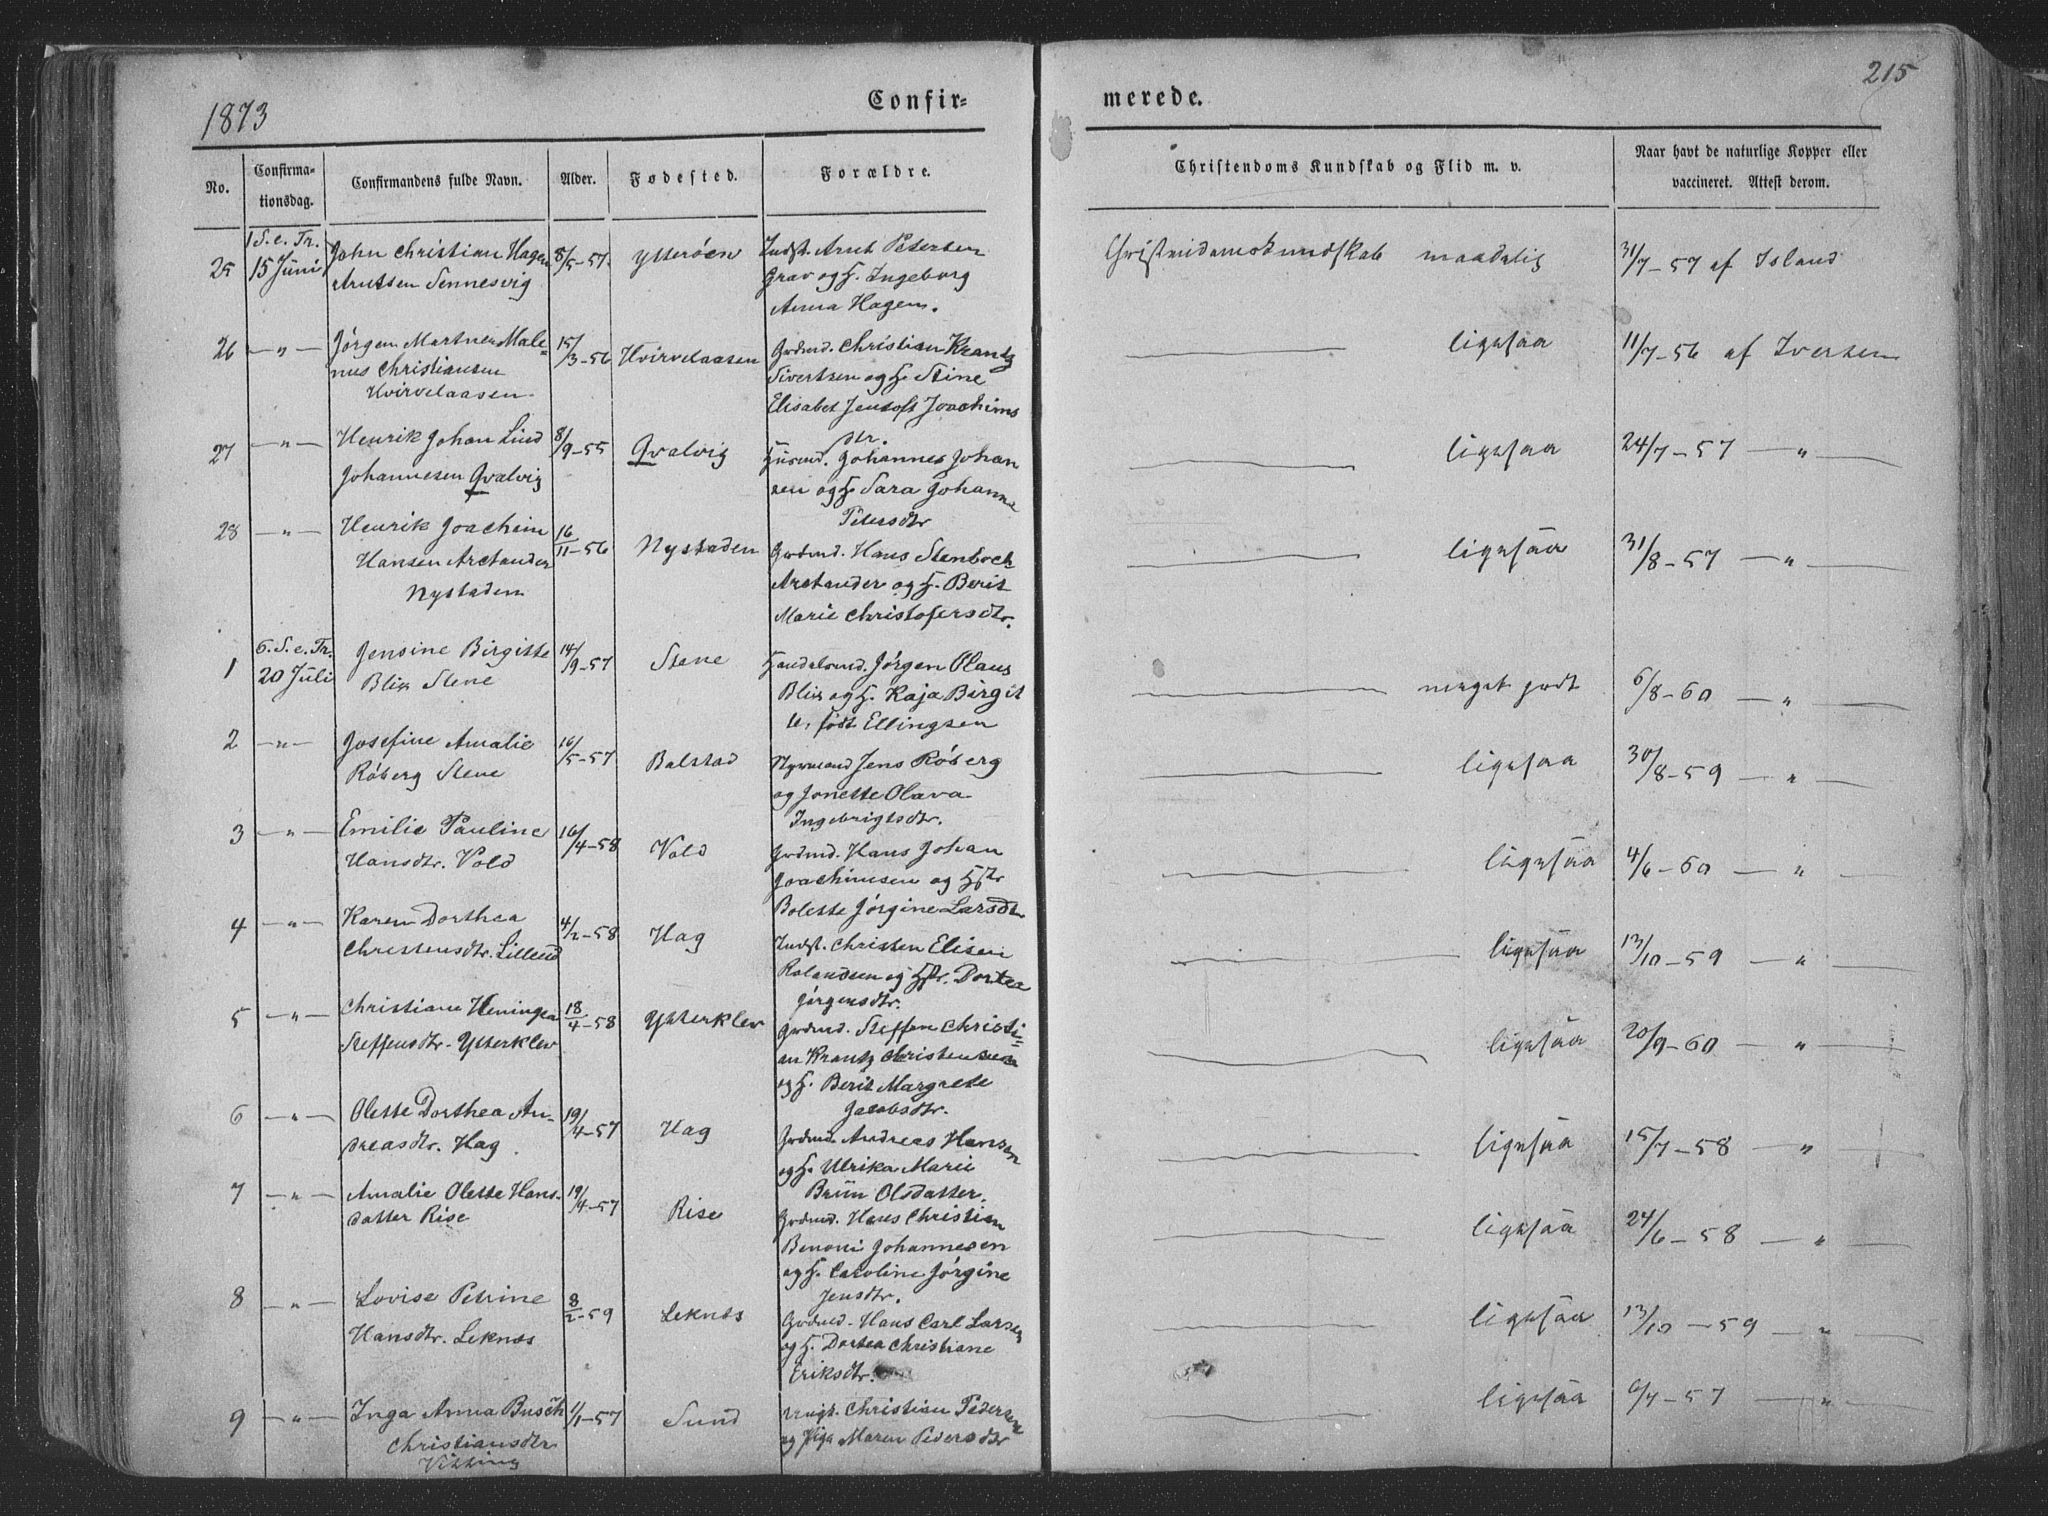 1873
Confir=
merede.
215
No.
Confirma-
tionsdag.
Confirmandens fulde Navn.
Alder.
Fødested.
Forældre.
Christendoms Kundskab og Flid m. v.
Naar havt de naturlige Kopper eller
vaccineret. Attest derom.
1 S. e. Tr.
25 15 Juni John Christian Hagen 8/5-57. Ytterøen Indst. Arnt Petersen Christendomskundskab maadelig 31/7-57 af Island
Arntsen Sennesvig Grav og H. Ingeborg
Anna Hagen.
26 -"- Jørgen Martner Male- 15/3-56 Hvirvelaasen Grdmd. Christian Krantz ligesaa 11/7-56 af Iversen
nus Christiansen Sivertsen og H. Stine
Hvirvelaasen Elisabet Jentoft Joachims
dtr.
27 -"- Henrik Johan Lind 8/9-55 Qvalvig Husmd. Johannes Johan ligesaa 24/7-57 -"-
Johannesen Qvalvig sen og H. Sara Johanna
Petersdtr
28 -"- Henrik Joachim 16/11-56 Nystaden Grdmd. Hans Stenboch ligesaa 31/8-57 -"-
Hansen Arctander Arctander og H. Berit
Nystaden Marie Christofersdtr.
6. S. e. Tr.
1 20 Juli Jensine Birgitte 14/9-57 Stene Handelsmd. Jørgen Olaus meget godt 6/8-60 -"-
Blix Stene Blix og H. Kaja Birgit
te, født Ellingsen
2 -"- Josefine Amalie 16/5-57 Balstad Styrmand Jens Røberg ligesaa 30/8-59 -"-
Røberg Stene og Jonette Olava
Ingebrigtsdtr.
3 -"- Emilie Pauline 16/4-58 Vold Grdmd. Hans Johan ligesaa 4/6-60 -"-
Hansdtr. Vold Joachimsen og Hstr
Bolette Jørgine Larsdtr
4 -"- Karen Dorthea 4/2-58 Hag Indst. Christen Elisen ligesaa 13/10-59 -"-
Christensdtr. Lilleeid Rolandsen og Hstr. Dortea
Jørgensdtr.
5 -"- Christiane Heningea 18/4-58 Ytterklev Grdmd. Steffen Christi- ligesaa 20/9-60 -"-
Steffensdtr. Ytterklev an Krantz Christensen
og H. Berit Margrete
Jacobsdtr.
6 -"- Olette Dorthea An- 19/4-57 Hag Grdmd. Andreas Hansen ligesaa 15/7-58 -"-
dreasdtr. Hag og H. Ulrika Marie
Brün Olsdatter.
7 -"- Amalie Olette Hans- 19/4-57 Rise Grdmd. Hans Christian ligesaa 24/6-58 -"-
datter Rise Benoni Johannesen
og H. Caroline Jørgine
Jensdtr.
8 -"- Lovise Petrine 8/2-59 Leknes Grdmd. Hans Carl Larsen ligesaa 13/10-59 -"-
Hansdtr. Leknes og H. Dortea Christiane
Eriksdtr.
9 -"- Inga Anna Busch 1/1-57 Sund Ungk. Christian Pedersen ligesaa 6/7-57 -"-
Christiansdtr og Pige Maren Pedersdtr
Vikting